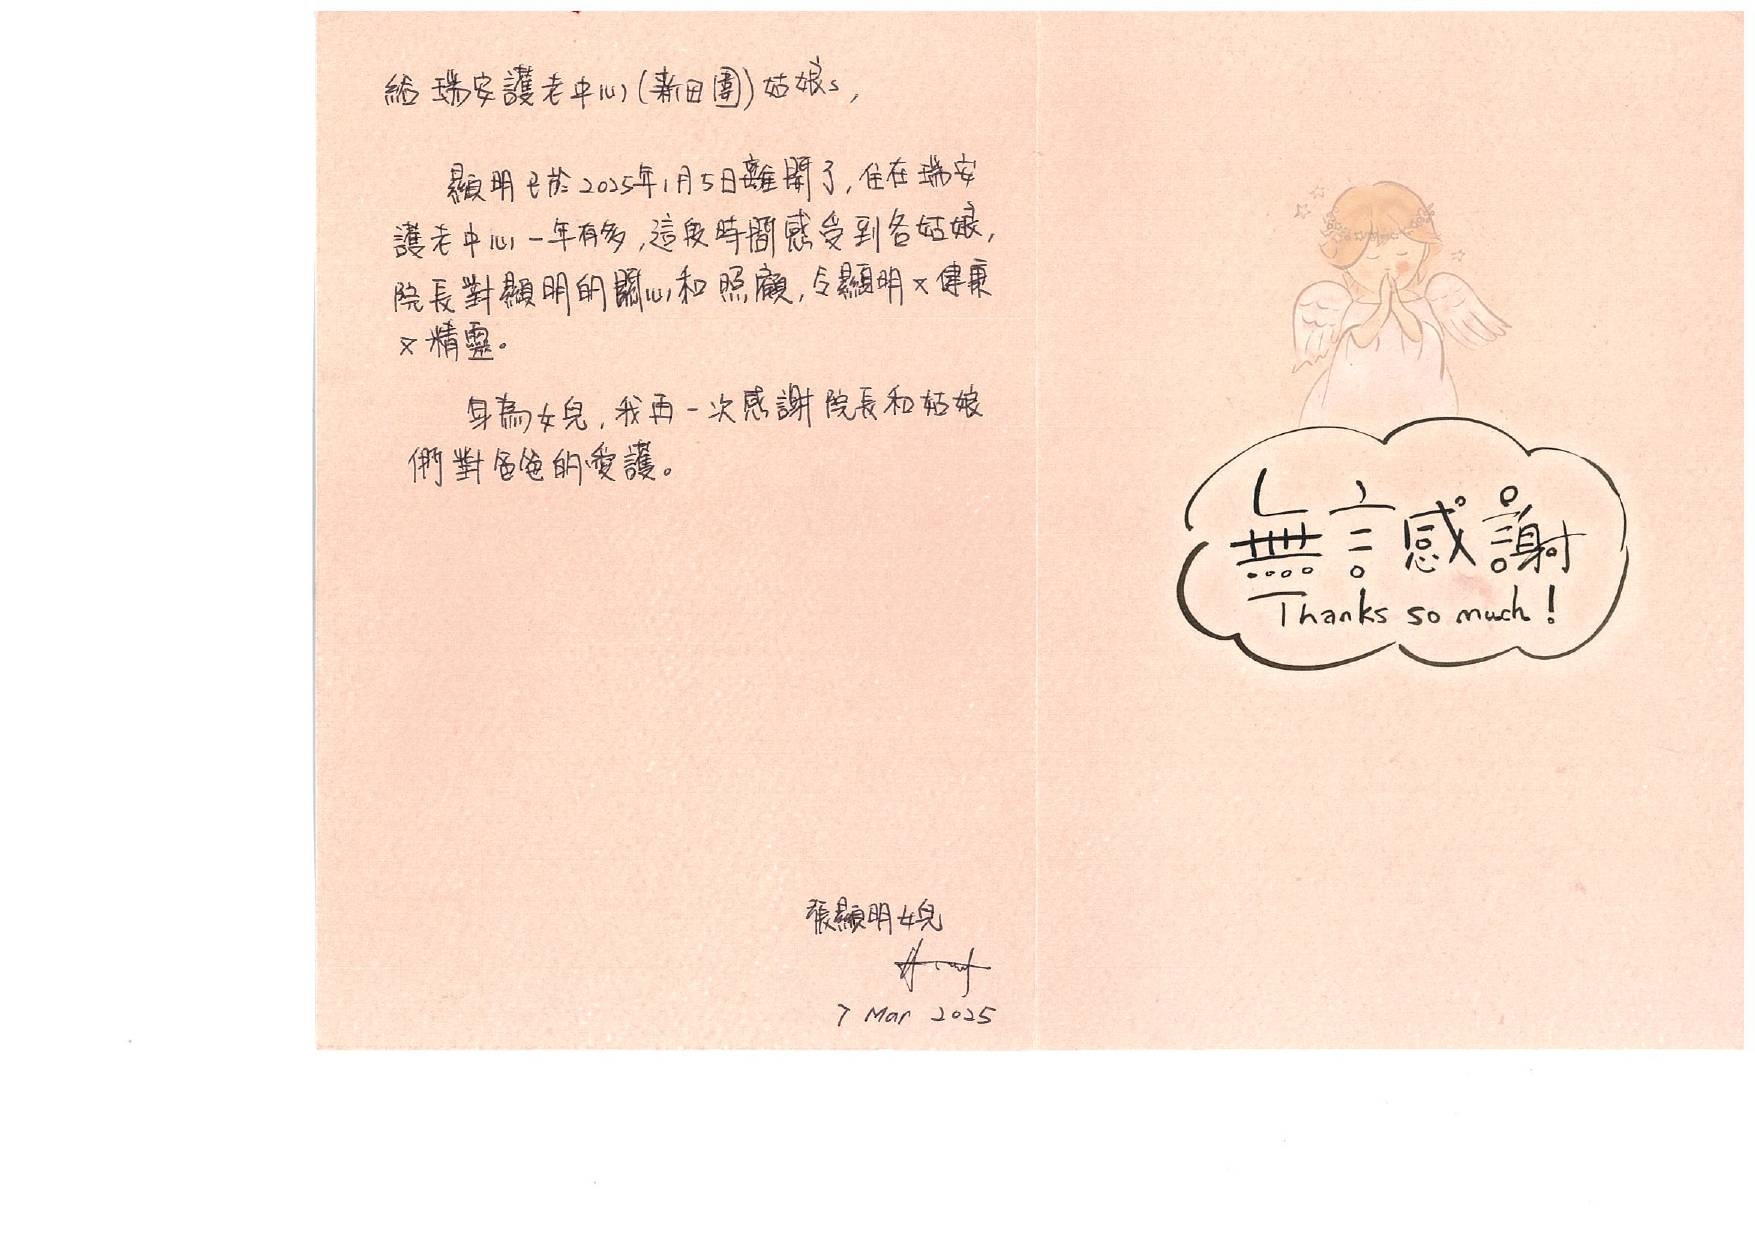 給 瑞安護老中心(新田圍)姑娘s,
顯明已於2025年1月5日離開了,住在瑞安
護老中心一年有多,這段時間感受到各姑娘,
院長對顯明的關心和照顧,令顯明又健康
又精靈。
身為女兒,我再一次感謝院長和姑娘
們對爸爸的愛護。
張顯明女兒
7 Mar 2025
無言感謝
Thanks so much!